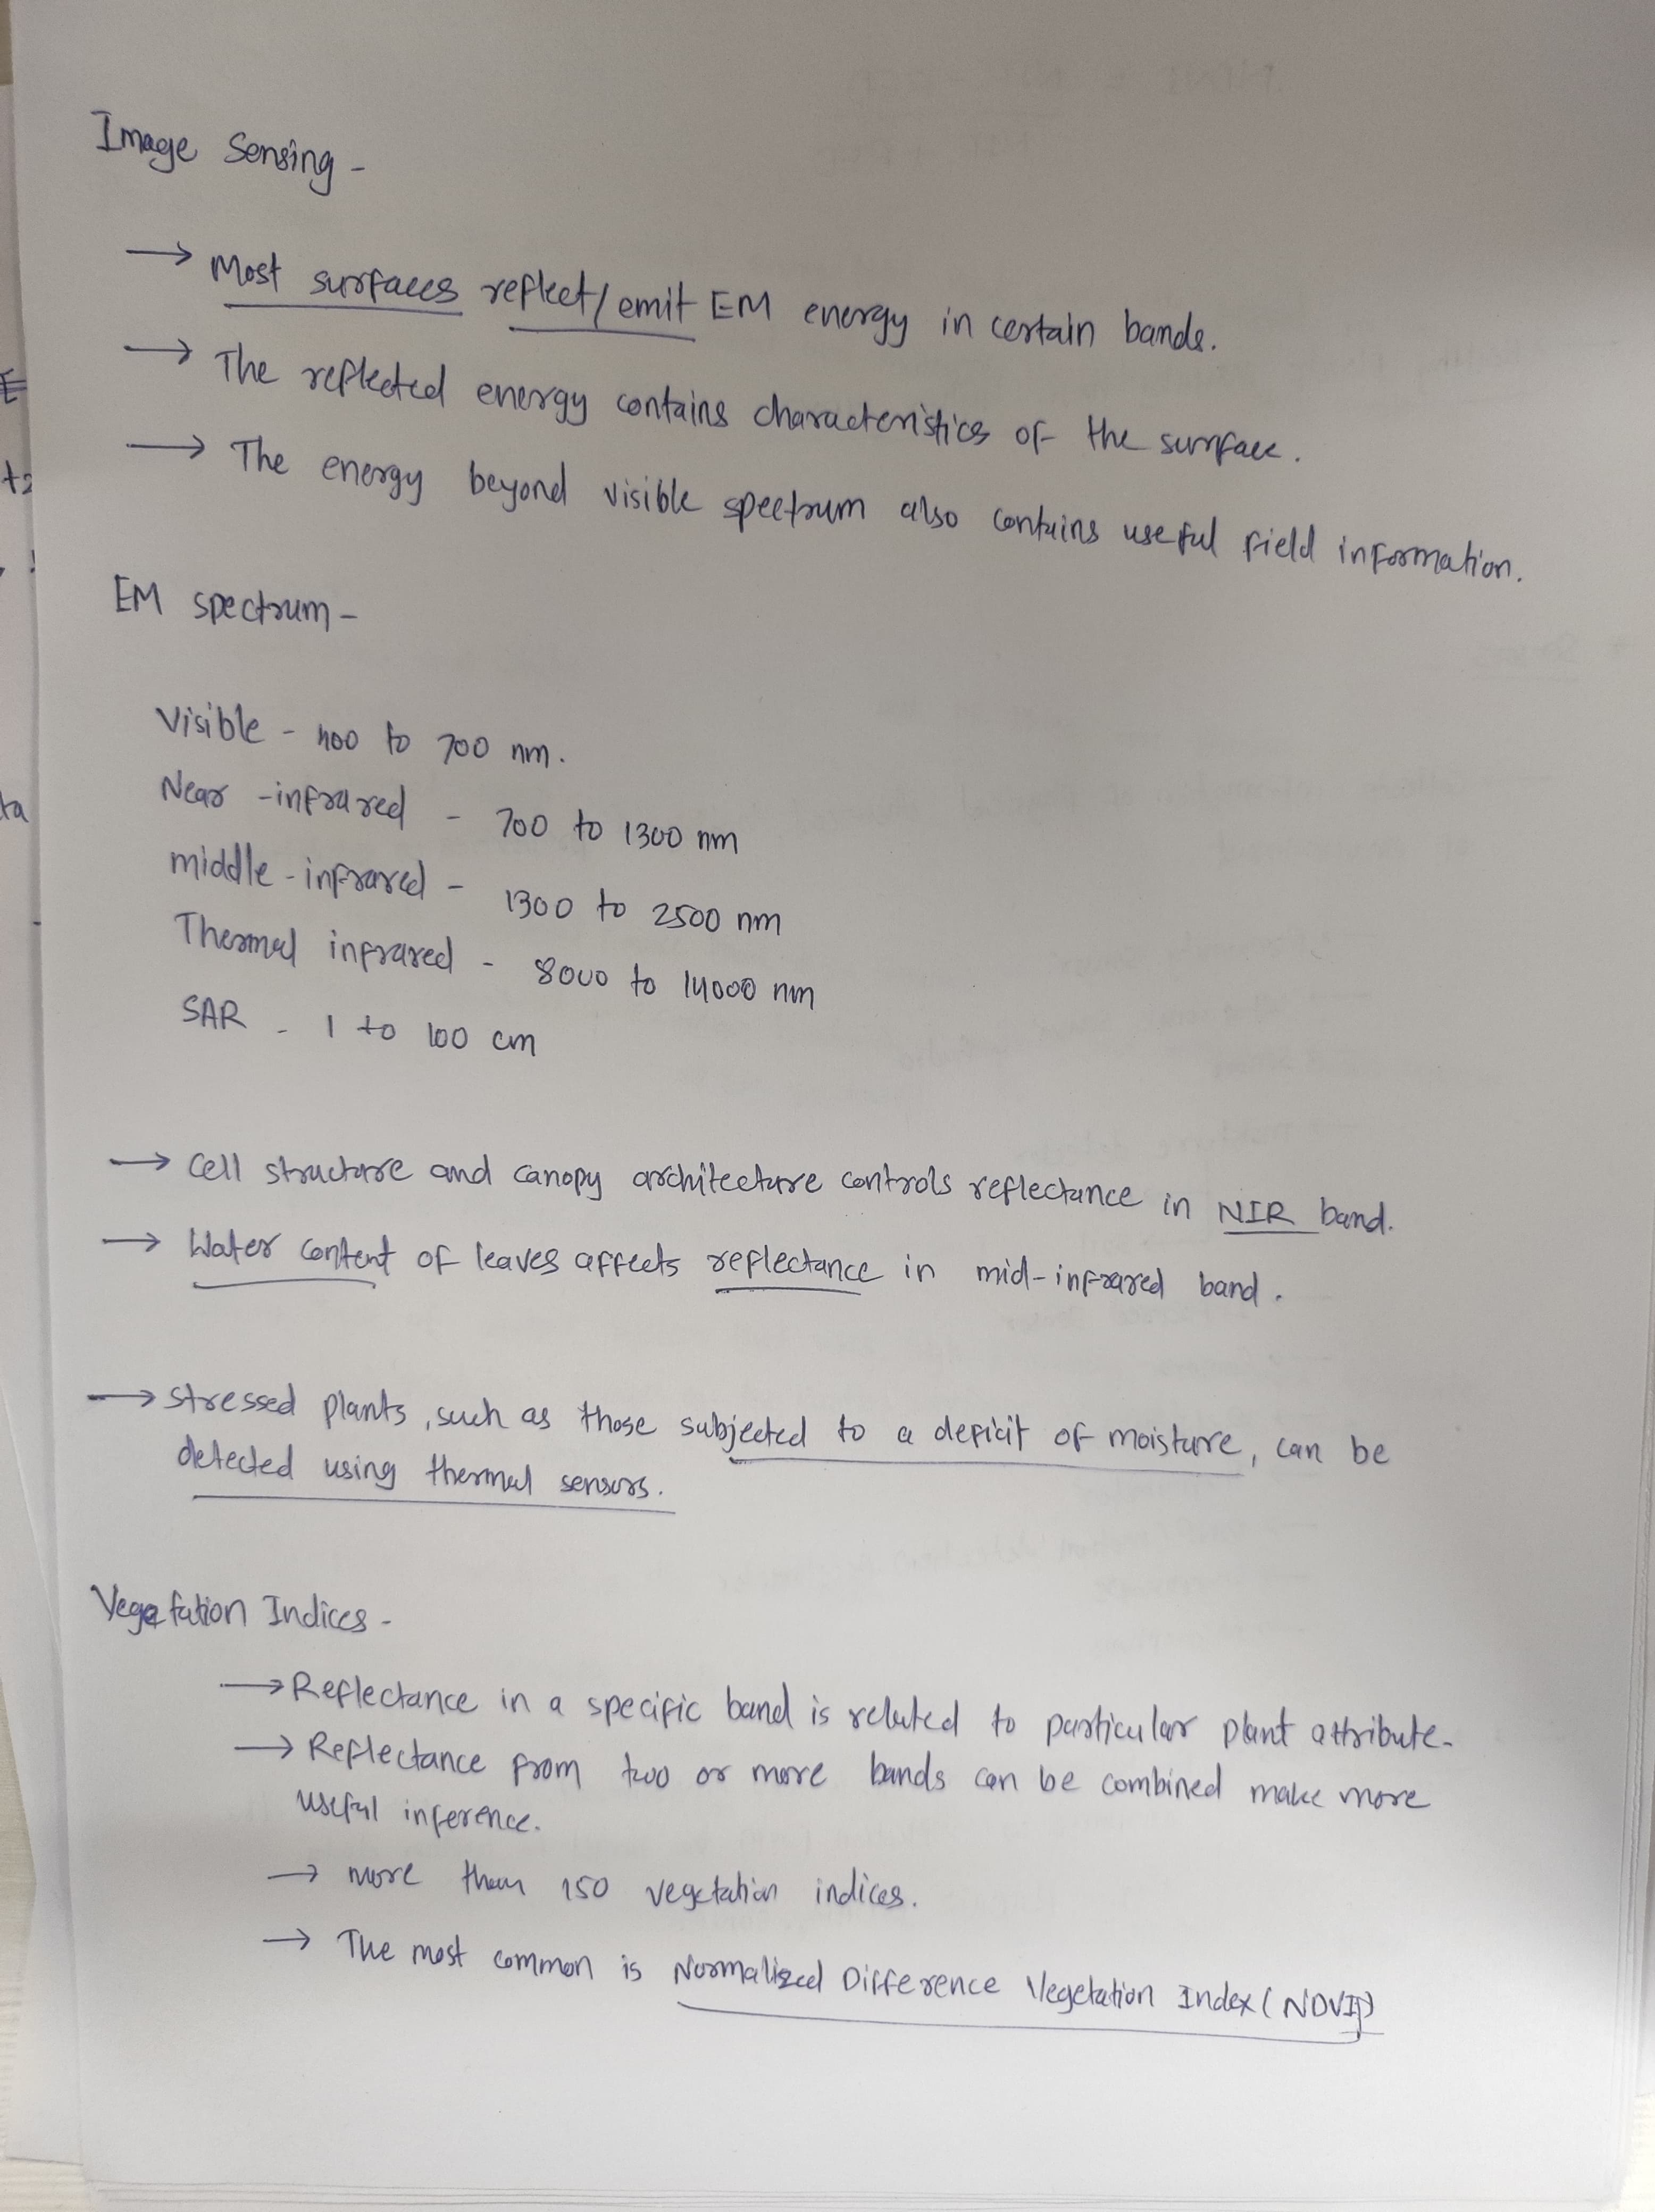 Image Sensing -
→ Most surfaces reflect/emit EM energy in certain bands.
→ The reflected energy contains characteristics of the surface.
→ The energy beyond visible spectrum also contains useful field information.
EM spectrum -
Visible - 400 to 700 nm.
Near-infrared - 700 to 1300 nm
middle-infrared - 1300 to 2500 nm
Thermal infrared - 8000 to 14000 nm
SAR - 1 to 100 cm
→ Cell structure and canopy architecture controls reflectance in NIR band.
→ Water content of leaves affects reflectance in mid-infrared band.
→ stressed plants, such as those subjected to a deficit of moisture, can be
detected using thermal sensors.
Vegetation Indices -
→ Reflectance in a specific band is related to particular plant attribute.
→ Reflectance from two or more bands can be combined make more
useful inference.
→ more than 150 vegetation indices.
→ The most common is Normalized Difference Vegetation Index (NDVI)